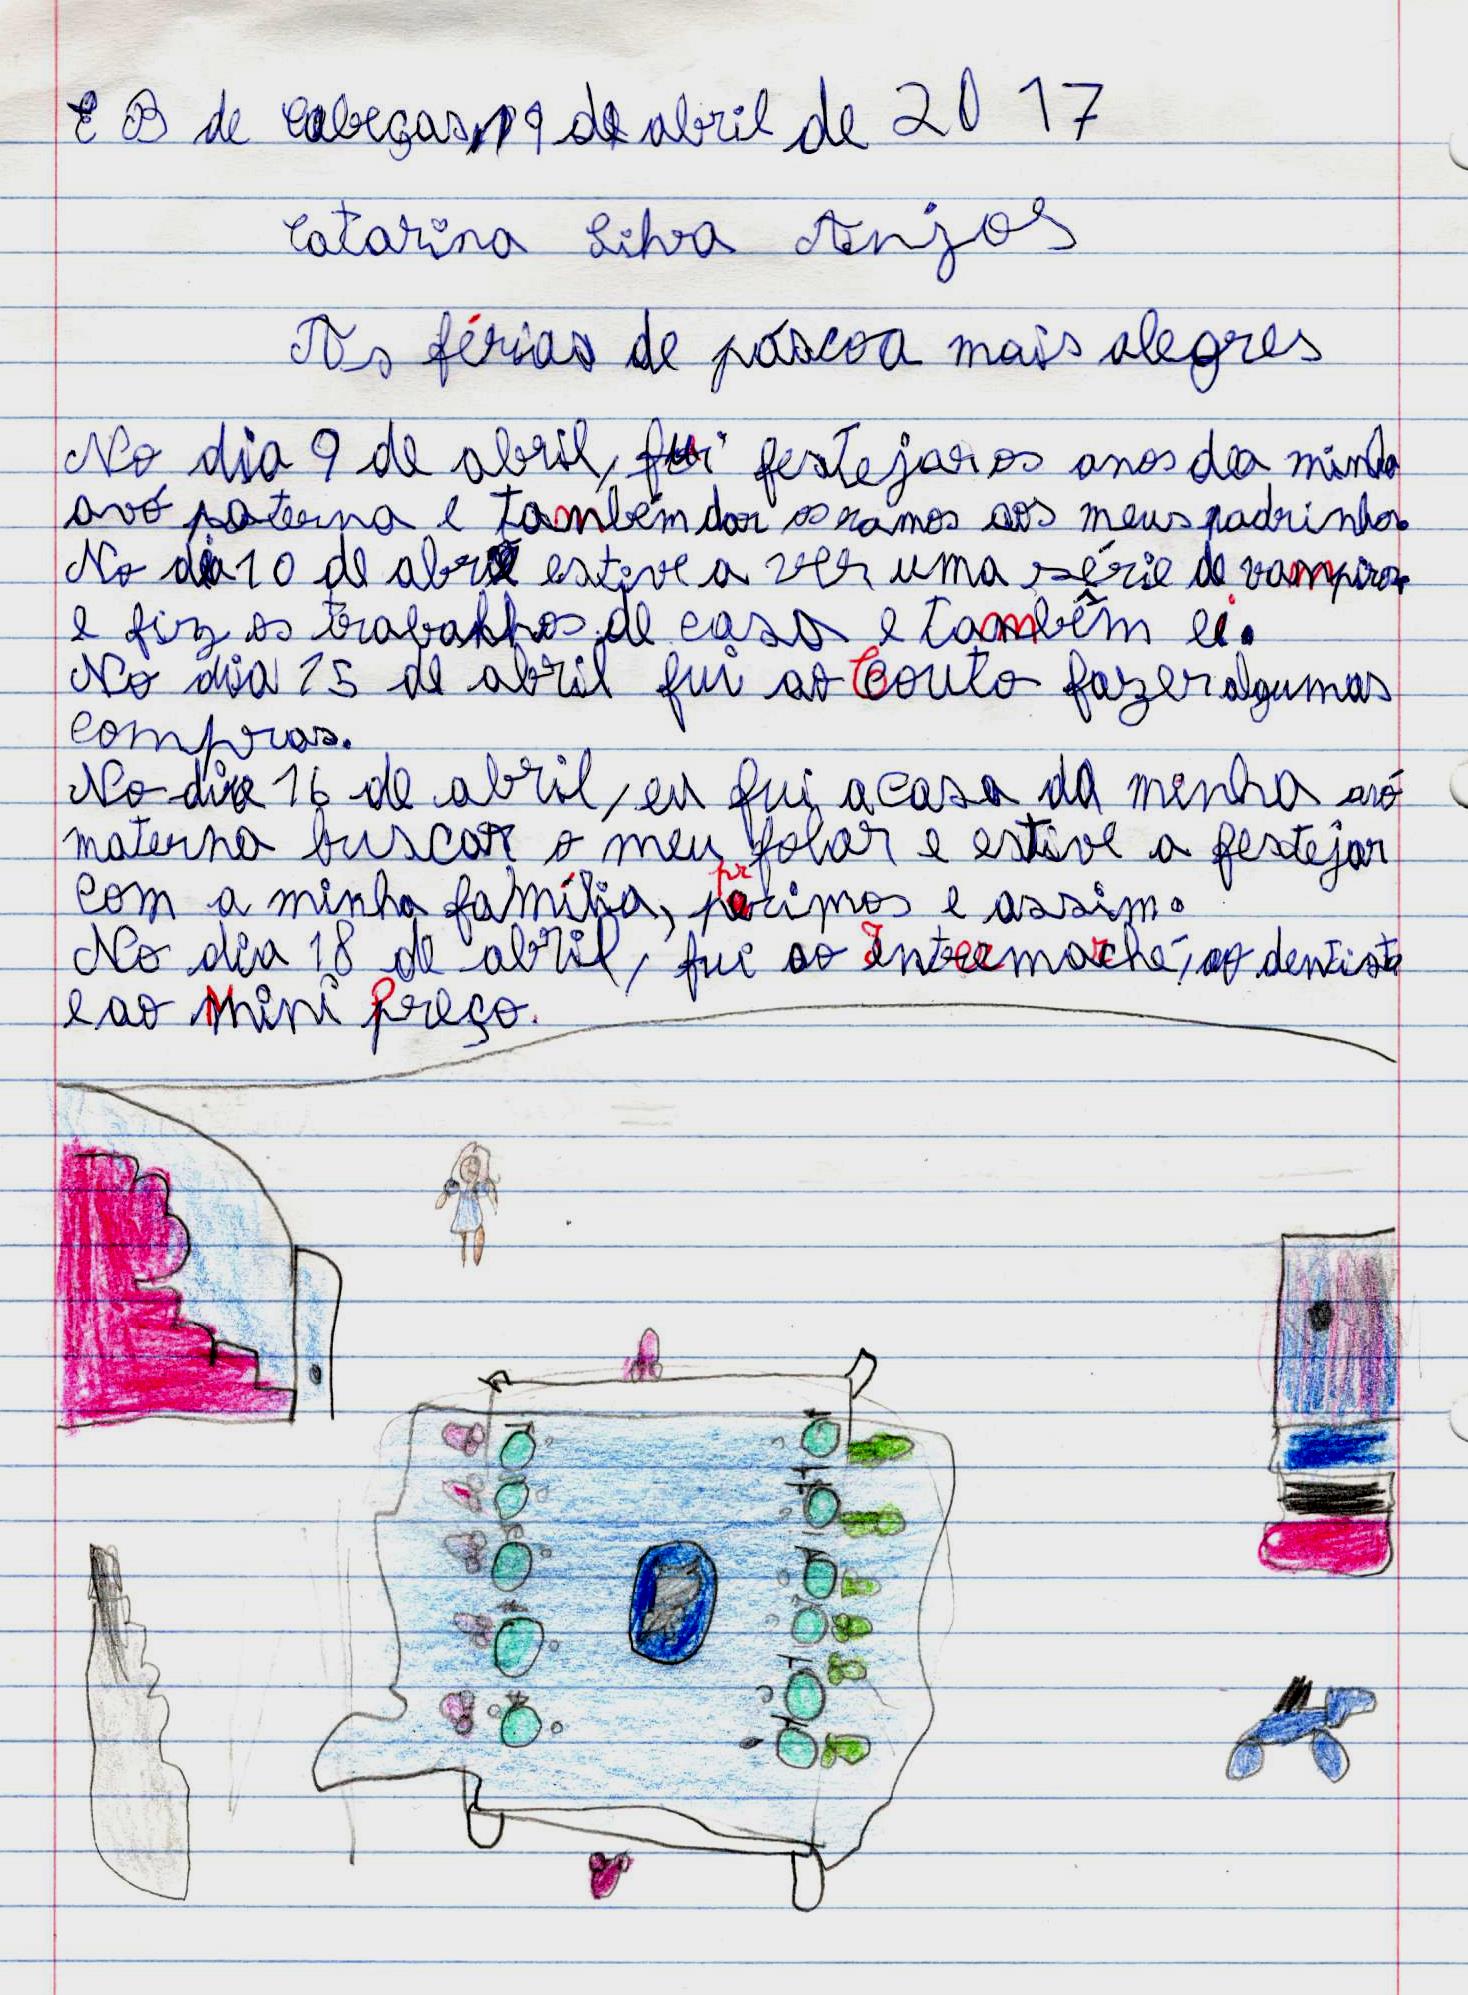 EB de Cabeças, 19 de abril de 2017
Catarina Silva Anjos
As férias de páscoa mais alegres
No dia 9 de abril, fui festejar os anos da minha
avó paterna e também dar os ramos aos meus padrinhos.
No dia 10 de abril estive a ver uma série de vampiros
e fiz os trabalhos de casa e também li.
No dia 15 de abril fui ao Couto fazer algumas
compras.
No dia 16 de abril, eu fui a casa da minha avó
materna buscar o meu folar e estive a festejar
com a minha família, primos e assim.
No dia 18 de abril, fui ao Intermarché, ao dentista
e ao Mini Preço.